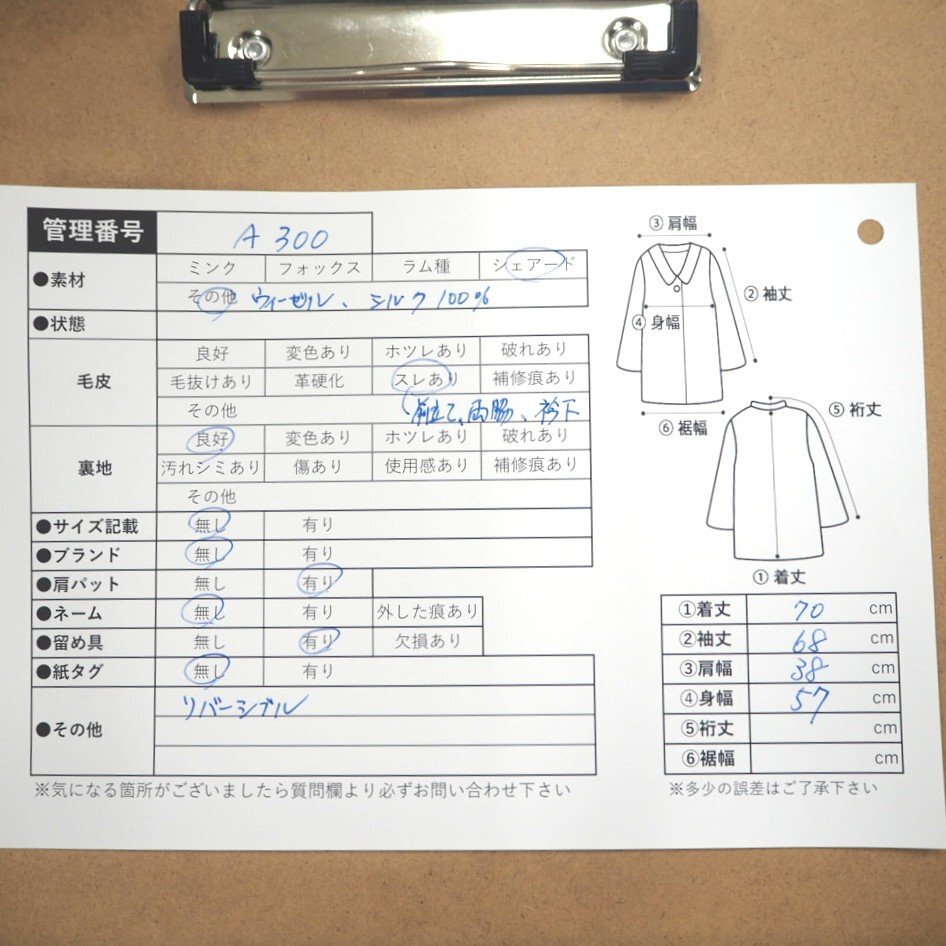 管理番号 A 300
●素材 ミンク フォックス ラム種 シェアード
その他 ウィーゼル、シルク100%
●状態
毛皮 良好 変色あり ホツレあり 破れあり
毛抜けあり 革硬化 スレあり 補修痕あり
その他 前立て、両脇、衿下
裏地 良好 変色あり ホツレあり 破れあり
汚れシミあり 傷あり 使用感あり 補修痕あり
その他
●サイズ記載 無し 有り
●ブランド 無し 有り
●肩パット 無し 有り
●ネーム 無し 有り 外した痕あり
●留め具 無し 有り 欠損あり
●紙タグ 無し 有り
●その他 リバーシブル
※気になる箇所がございましたら質問欄より必ずお問い合わせ下さい
③ 肩幅
② 袖丈
④ 身幅
⑥ 裾幅
⑤ 裄丈
① 着丈
①着丈 70 cm
②袖丈 68 cm
③肩幅 38 cm
④身幅 57 cm
⑤裄丈 cm
⑥裾幅 cm
※多少の誤差はご了承下さい